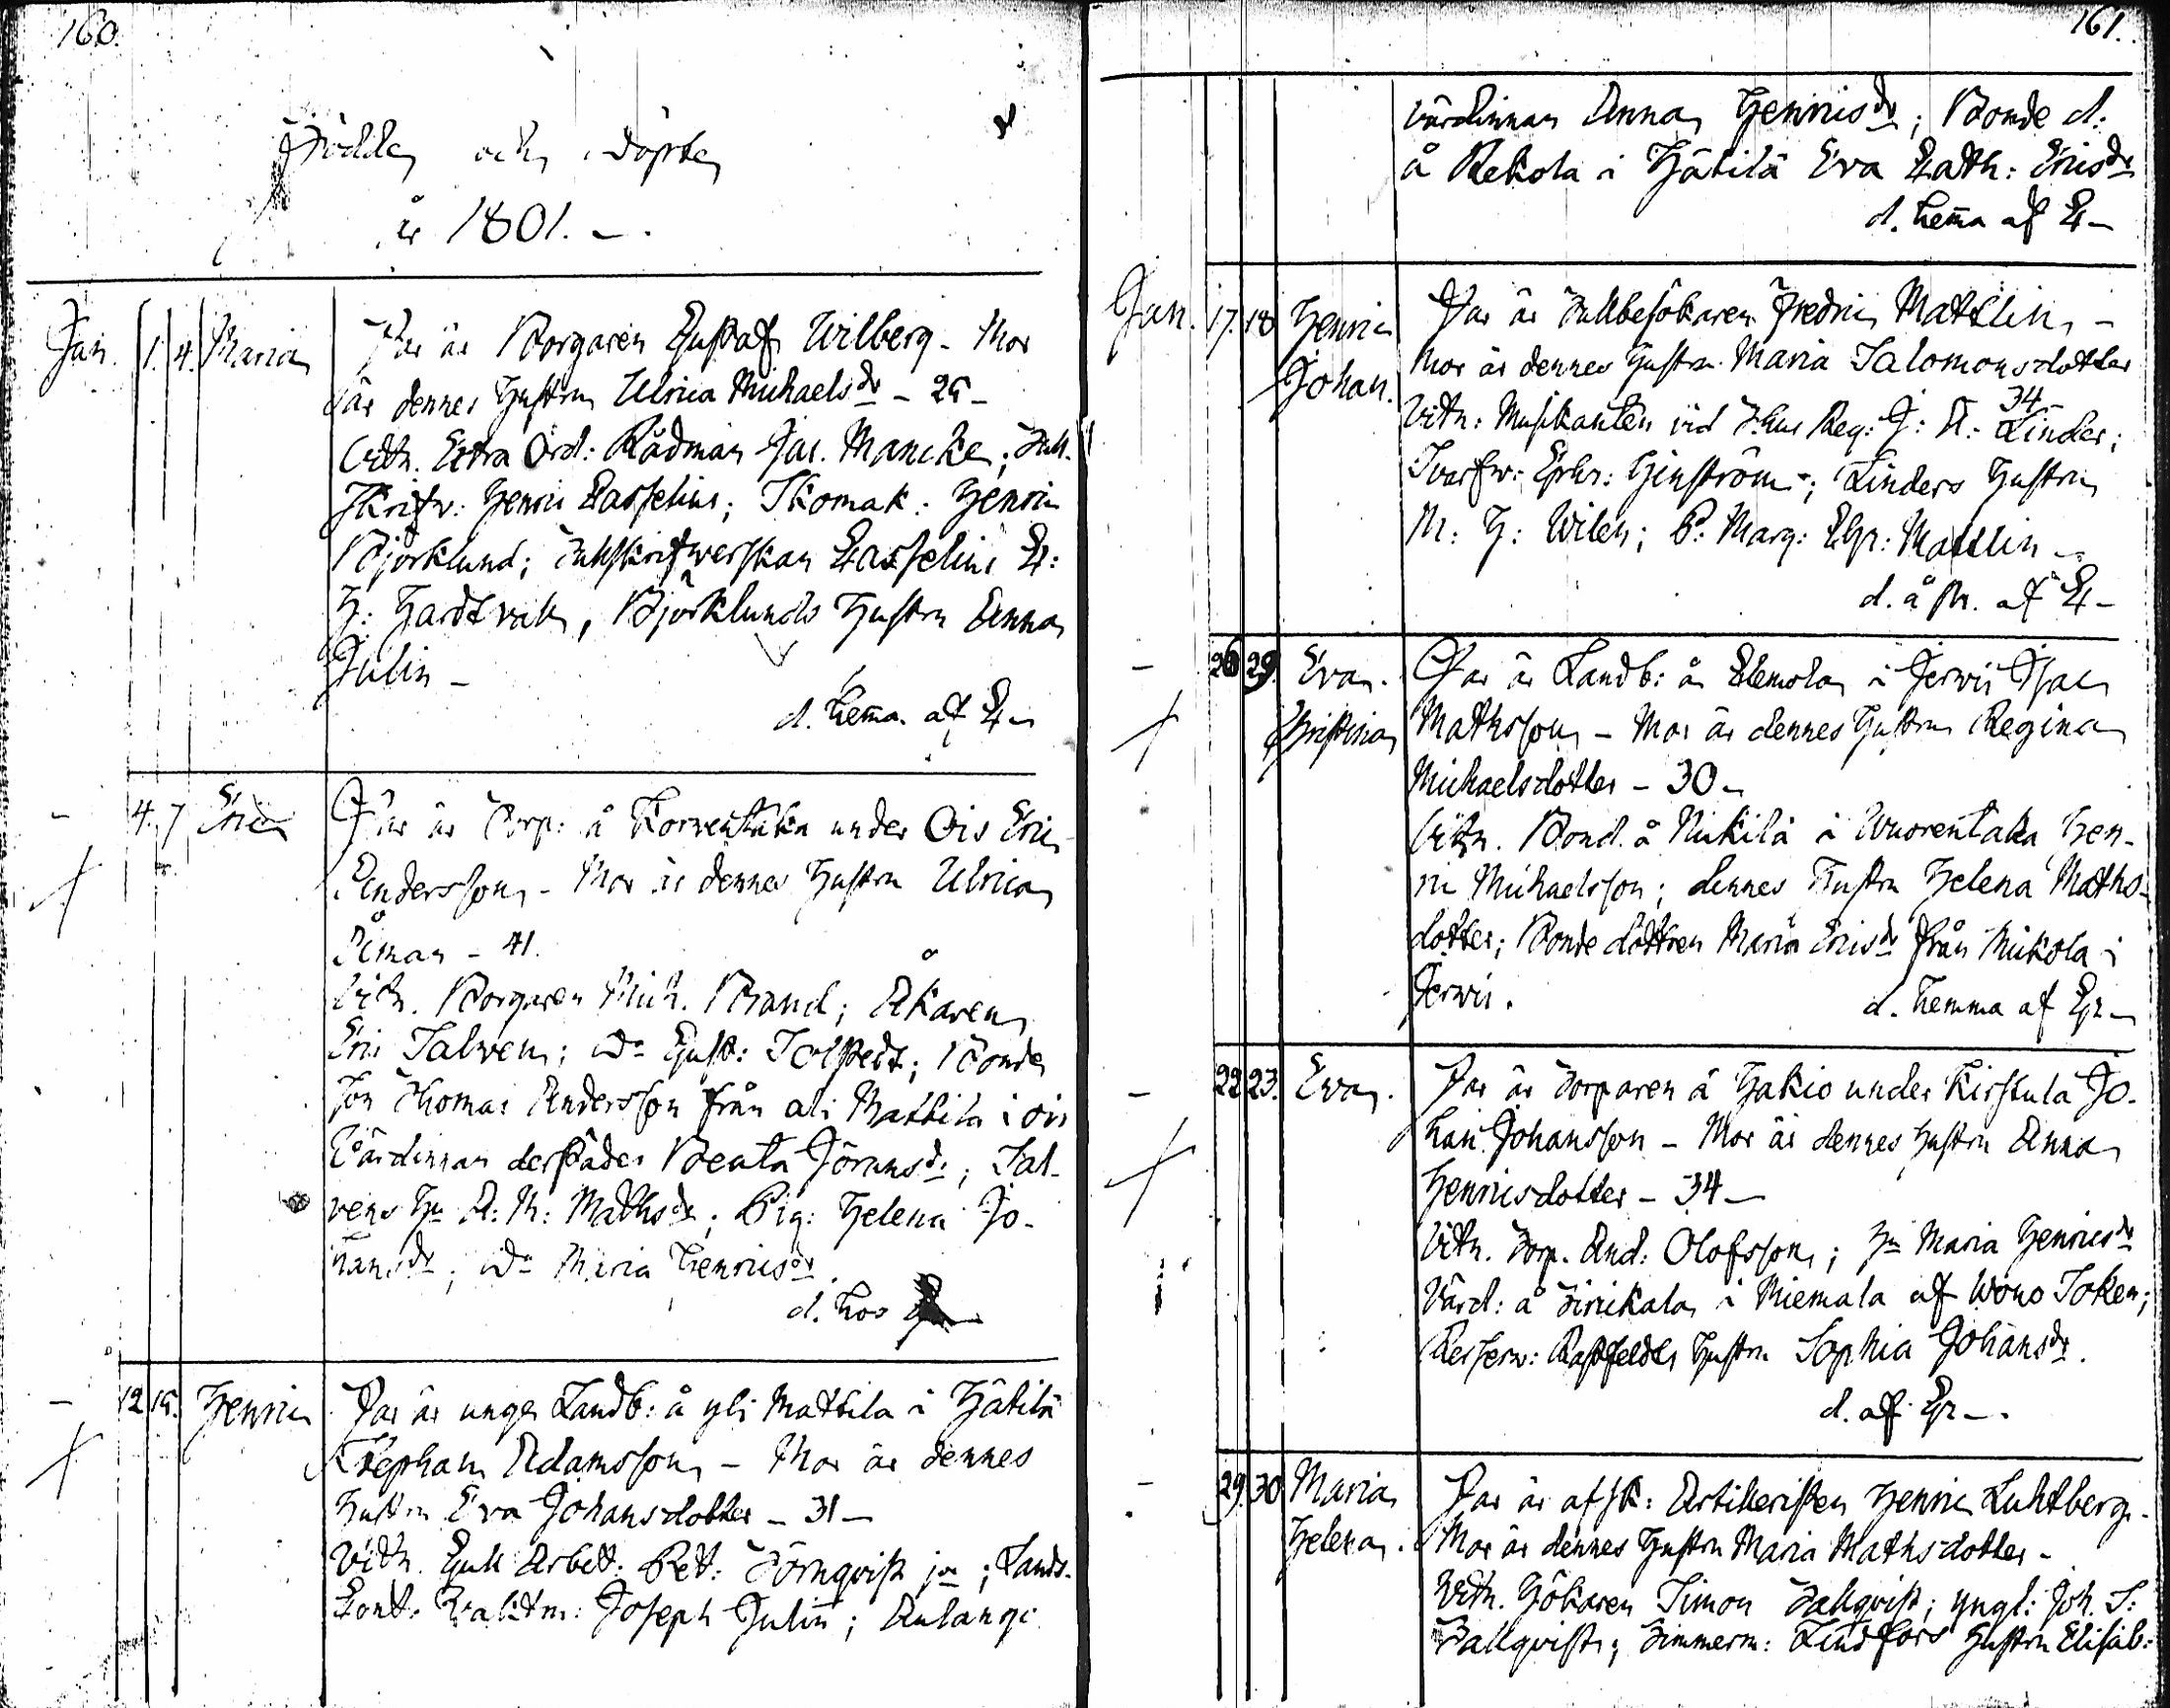 160.
Födde och döpte
år 1801. -.
Jan. 1. 4. Maria
Far är Borgaren Gustaf Wilberg - Mor
är dennes Hustru Ulrica Michaelsdr - 25 -
Vitn. Extra Ord: Rådman Jac. Mancke; Tull.
Skrifv: Henric Casselius; Skomak: Henric
Björklund; Tullskrifwerskan Casselius C:
H: Hardtvall, Björklunds Hustru Anna
Julin -
d. hemma af C -
4. 7 Eric
Far är Torp: å Korventaka under Ois Eric
Andersson - Mor är dennes Hustru Ulrica
Åman - 41.
Vitn. Borgaren Mich. Brand; Åkaren
Eric Salven; Do Gust: Solstedt; Bonde
Son Thomas Andersson från ali Mattila i Ois
Värdinnan derstädes Beata Jöransdr; Sal-
vens Hu A: M: Mathsdr; Pig: Helena Jo-
hansdr; Do Maria Henricsdr.
d. hos
12 15. Henric
Far är unge Landb: å yli Mattila i Hätilä
Stephan Adamsson - Mor är dennes
Hustru Eva Johansdotter - 31 -
Vitn. Gull Arbet: Pet: Törnqvist jr; Lands.
Cont: Vaktm: Joseph Julin; Aulangi
161.
värdinnan Anna Henricsdr; Bonde d:
å Rekola i Hätilä Eva Cath: Ericsdr
d. hemma af C -
Jan. 17. 18 Henric
Johan.
Far är Tullbesökaren Fredric Mattlin -
Mor är dennes Hustru Maria Salomonsdotter
34 -
Vitn: Musikanten vid Thus Reg: J: A: Linder;
Svarfw: Ephr: Hinström; Linders Hustru
M: H: Wilen; P: Marg: Chr: Mattlin -
d. å Pr. af C -
26 29. Eva.
Christina
Far är Landb: å Clemola i Jerwis Isac
Mathsson - Mor är dennes Hustru Regina
Michaelsdotter - 30 -
Vitn. Bond. å Nikilä i Wuorentaka Hen-
ric Michaelsson; dennes Hustru Helena Maths-
dotter; Bonde dottren Maria Ericsdr från Mikola i
Jerwis. d. hemma af Gr -
22 23. Eva.
Far är Torparen å Hakio under Kirstula Jo-
han Johansson - Mor är dennes Hustru Anna
Henricsdotter - 34 -
Vitn. Torp. And: Olofsson; Hu Maria Henricsdr
Värd: å Sirikala i Miemala af Wåno Soken;
Resserw: Rassfeldts Hustru Sophia Johansdr.
d. af Gr -.
29. 30 Maria
Helena.
Far är afsk: Artilleristen Henric Luhtberg -
Mor är dennes Hustru Maria Mathsdotter -
Vitn. Hökaren Simon Tallqvist; yngl: Joh. S:
Tallqvist; Timmerm: Lindfors Hustru Elisab: